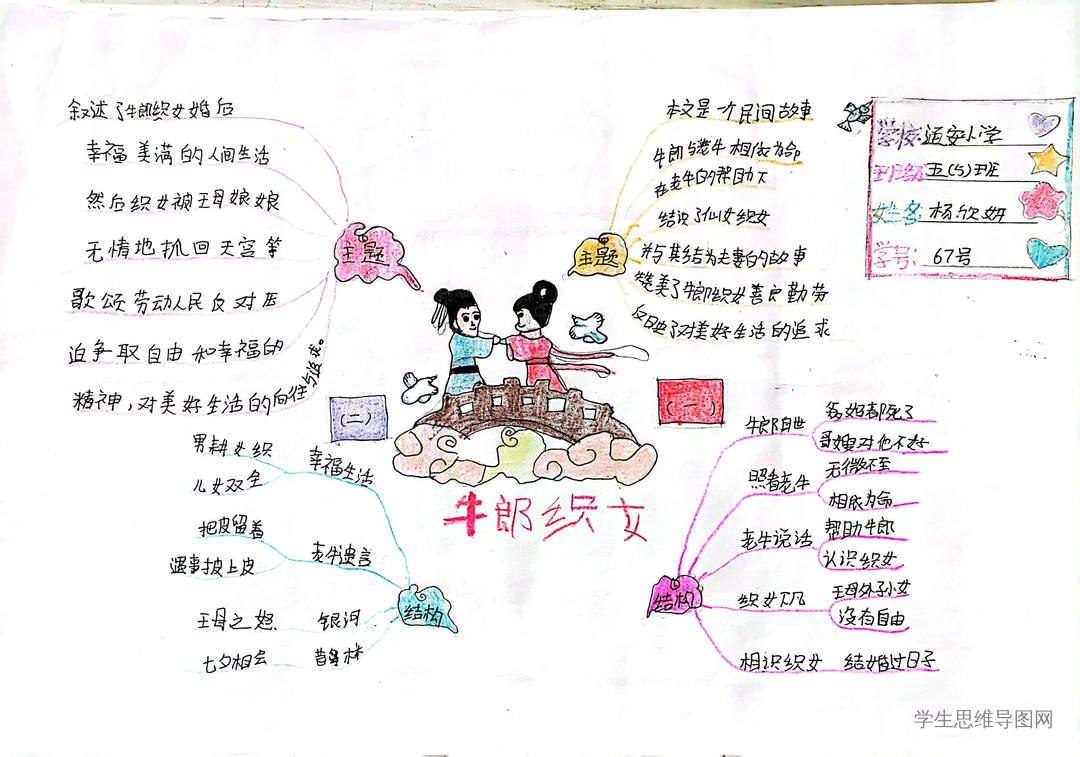 叙述了牛郎织女婚后
幸福美满的人间生活
然后织女被王母娘娘
无情地抓回天宫等
歌颂劳动人民反对压
迫争取自由和幸福的
精神，对美好生活的向往与追求。
主题
本文是一个民间故事
牛郎与老牛相依为命
在老牛的帮助下
结识了仙女织女
并与其结为夫妻的故事
赞美了牛郎织女善良勤劳
反映了对美好生活的追求
主题
学校:
小学
班级
五(5)班
姓名
杨欣妍
学号:
67号
(二)
(一)
牛郎织女
幸福生活
男耕女织
儿女双全
老牛遗言
把皮留着
遇事披上皮
银河
王母之怒
七夕相会
结构
牛郎身世
爹妈都死了
哥嫂对他不好
照看老牛
无微不至
相依为命
老牛说话
帮助牛郎
认识织女
织女下凡
王母外孙女
没有自由
相识织女
结婚过日子
结构
学生思维导图网